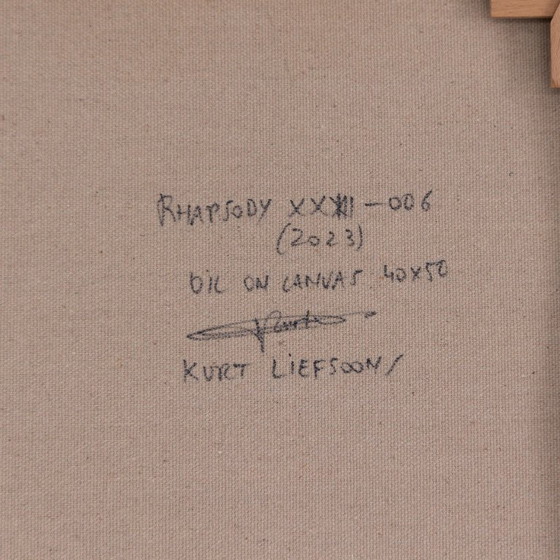 RHAPSODY XXXIII-006
(2023)
OIL ON CANVAS 40x50
Kurt
KURT LIEFSOON/